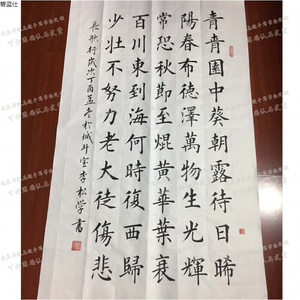 青青園中葵朝露待日晞
陽春布德澤萬物生光輝
常恐秋節至焜黄華葉衰
百川東到海何時復西歸
少壯不努力老大徒傷悲
長歌行歲次丁酉孟冬於斗室李松学書